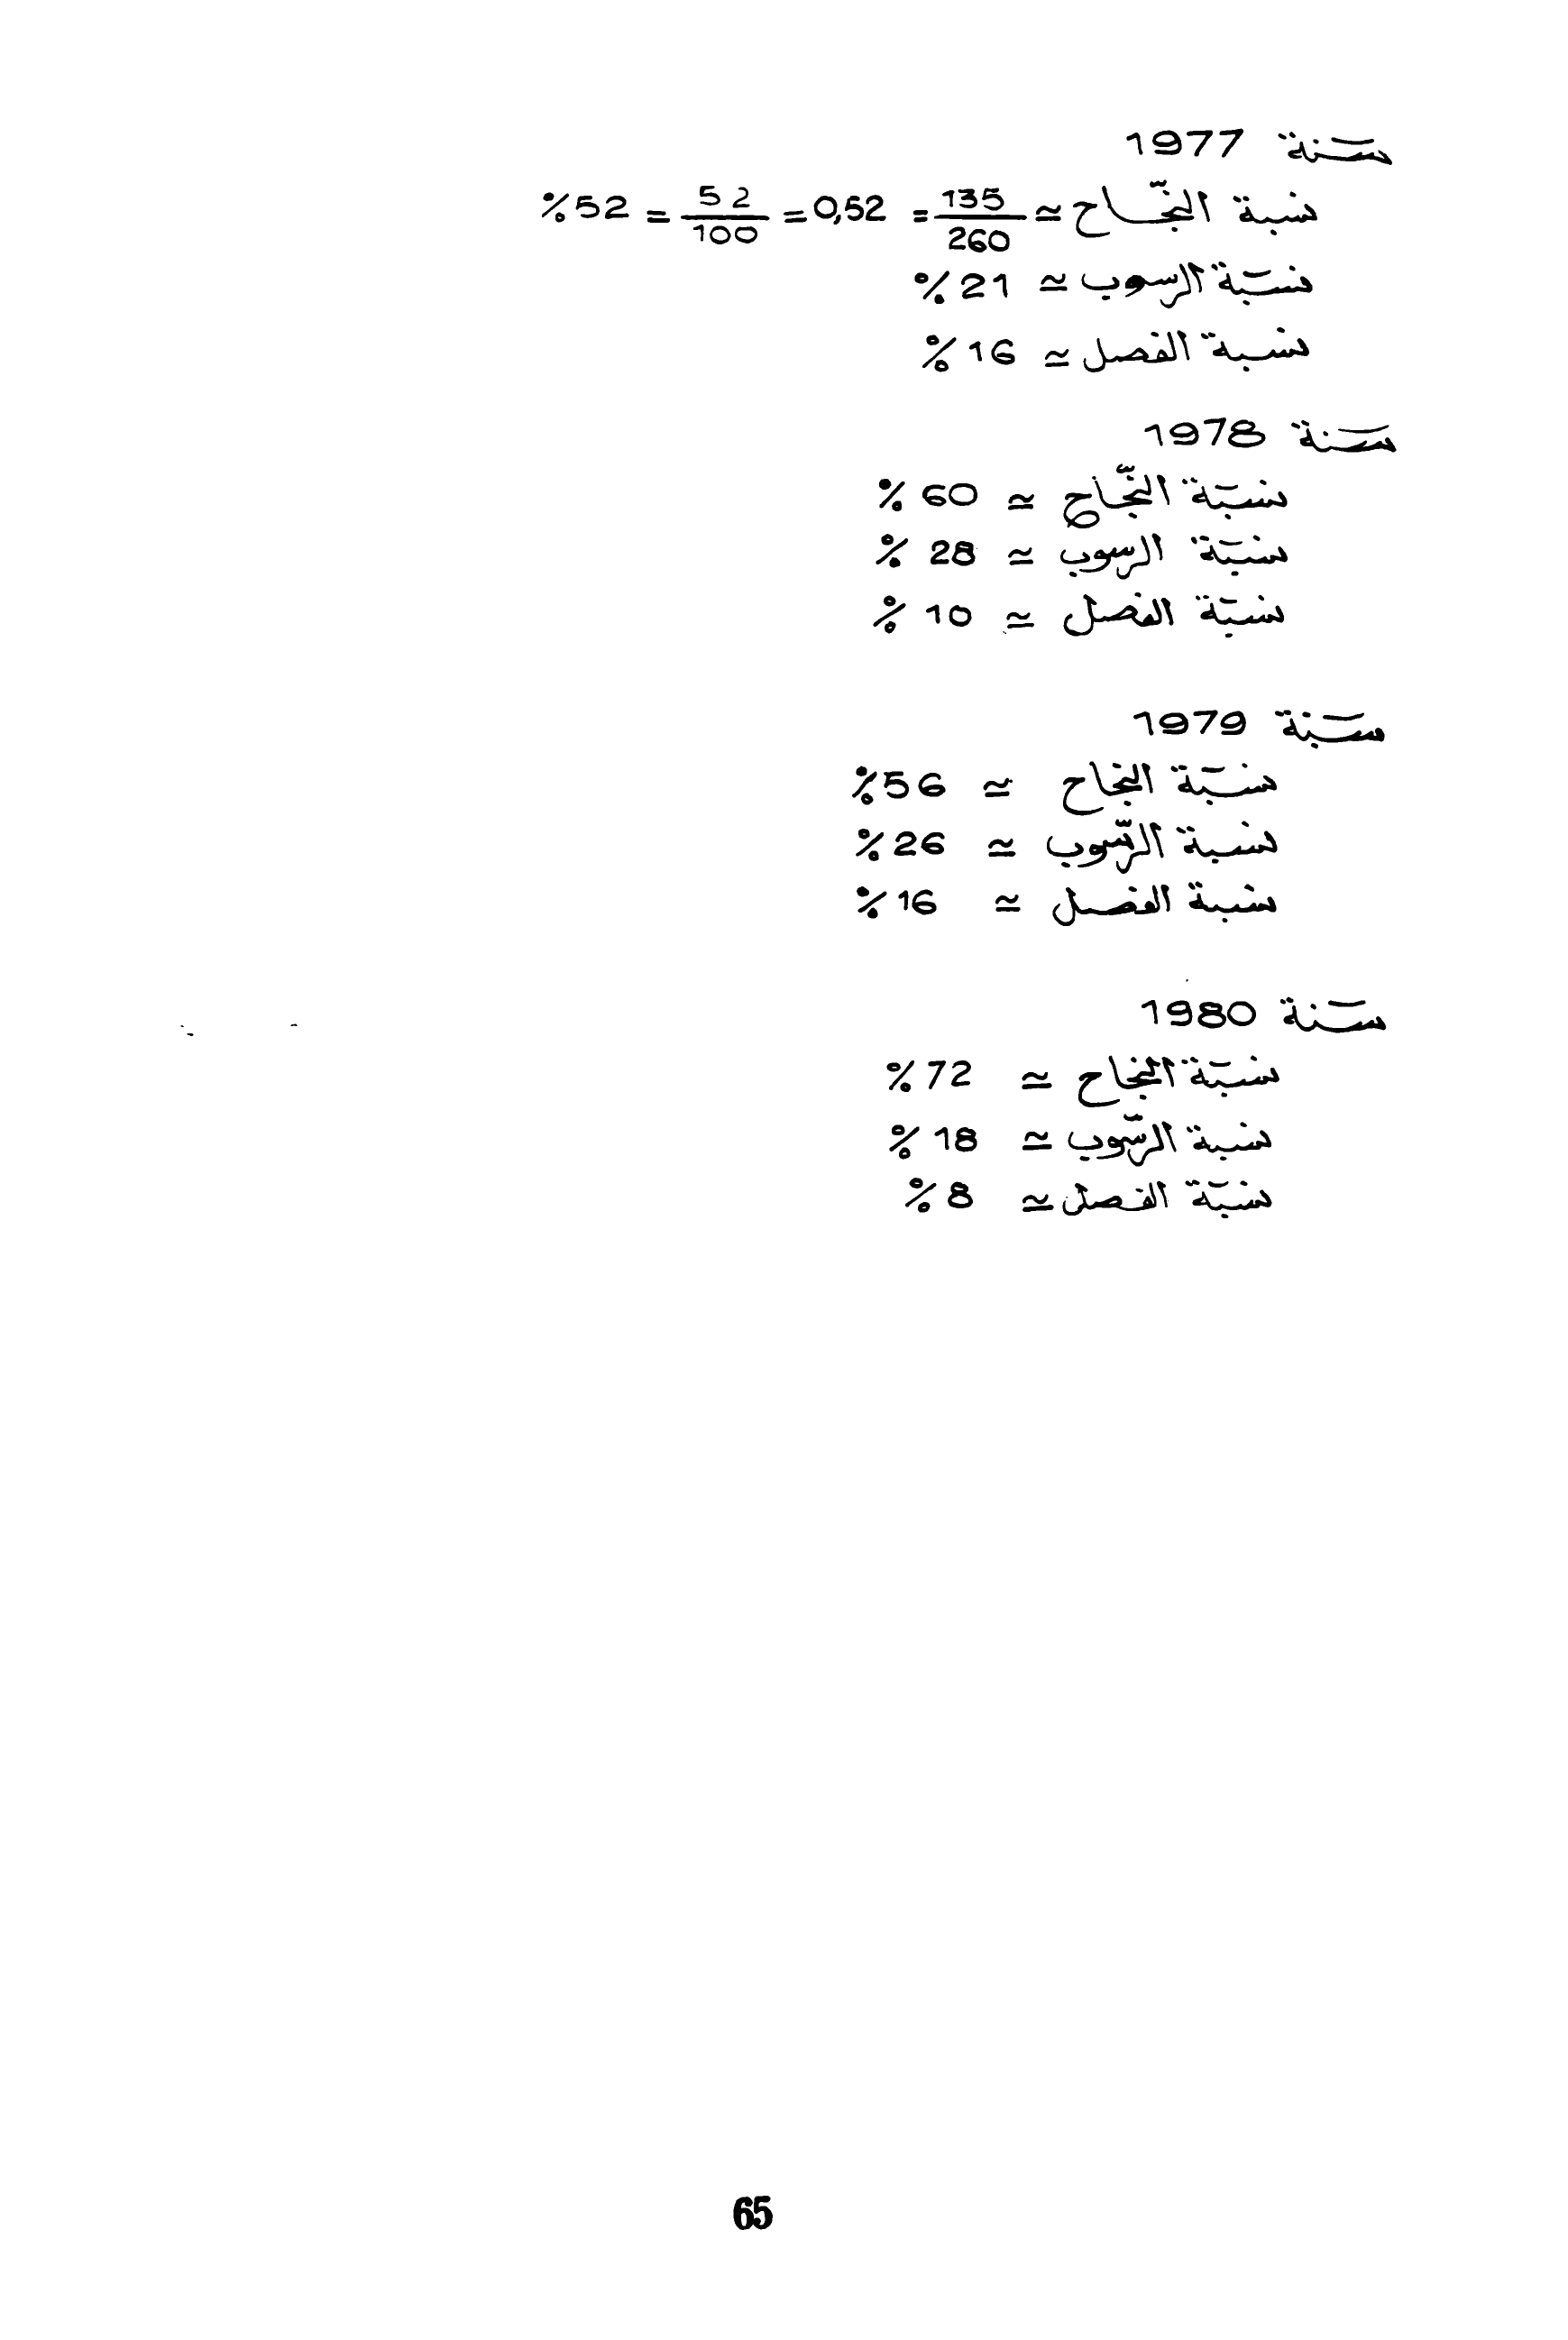 سنة 1977
نسبة النجّاح ≃ 135/260 = 0,52 = 52/100 = 52%
نسبة الرسوب ≃ 21%
نسبة الفصل ≃ 16%
سنة 1978
نسبة النجّاح ≃ 60%
نسبة الرسوب ≃ 28%
نسبة الفصل ≃ 10%
سنة 1979
نسبة النجاح ≃ 56%
نسبة الرّسوب ≃ 26%
نسبة الفصل ≃ 16%
سنة 1980
نسبة النجاح ≃ 72%
نسبة الرّسوب ≃ 18%
نسبة الفصل ≃ 8%
65